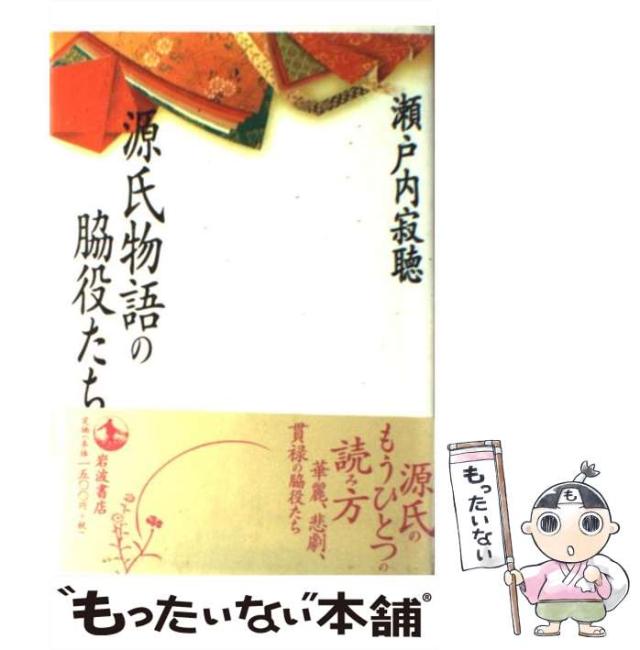 瀬戸内寂聴
源氏物語の
脇役たち
源氏の
もうひとつの
読み方
華麗、悲劇、
貫禄の脇役たち
岩波書店
定価(本体一五〇〇円+税)
"もったいない"本舗®
もったいない
も